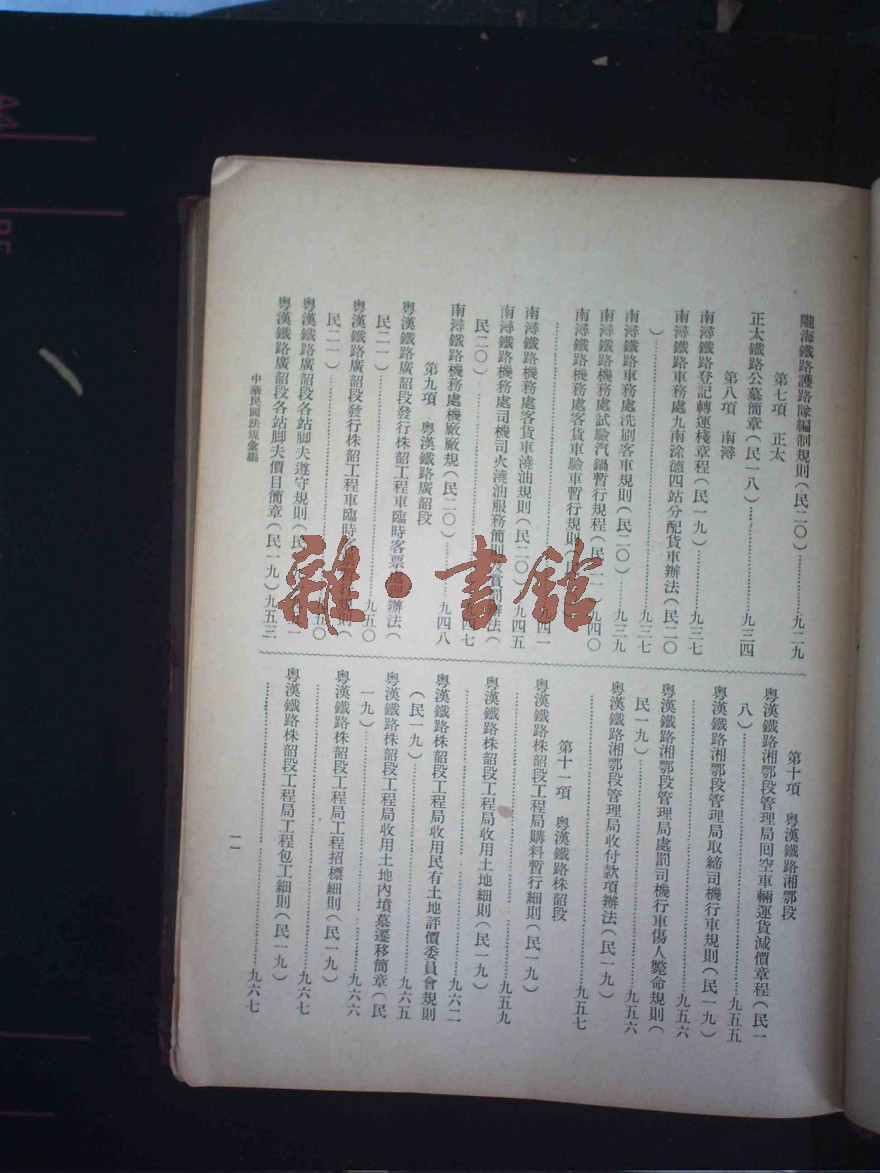 隴海鐵路護路隊編制規則(民二〇)……九二九
第七項　正太
正太鐵路公墓簡章(民一八)……九三四
第八項　南潯
南潯鐵路登記轉運棧章程(民一九)……九三七
南潯鐵路車務處九南涂德四站分配貨車辦法(民二〇
)……九三七
南潯鐵路車務處洗刷客車規則(民二〇)……九三九
南潯鐵路機務處試驗汽鍋暫行規程(民二一)九四〇
南潯鐵路機務處客貨車驗車暫行規則(
……九四一
南潯鐵路機務處客貨車澆油規則(民二〇)九四五
南潯鐵路機務處司機司火澆油服務簡則及賞罰辦法(
民二〇)……九四七
南潯鐵路機務處機廠廠規(民二〇)……九四八
第九項　粵漢鐵路廣韶段
粵漢鐵路廣韶段發行株韶工程車臨時客票處理辦法(
民二一)……九五〇
粵漢鐵路廣韶段發行株韶工程車臨時客票暫行規則(
民二一)……九五〇
粵漢鐵路廣韶段各站脚夫遵守規則(民
粵漢鐵路廣韶段各站脚夫價目簡章(民一九)九五三
第十項　粵漢鐵路湘鄂段
粵漢鐵路湘鄂段管理局回空車輛運貨減價章程(民一
八)……九五五
粵漢鐵路湘鄂段管理局取締司機行車規則(民一九)
……九五六
粵漢鐵路湘鄂段管理局處罰司機行車傷人斃命規則(
民一九)……九五六
粵漢鐵路湘鄂段管理局收付款項辦法(民一九)
……九五七
第十一項　粵漢鐵路株韶段
粵漢鐵路株韶段工程局購料暫行細則(民一九)
……九五九
粵漢鐵路株韶段工程局收用土地細則(民一九)
……九六二
粵漢鐵路株韶段工程局收用民有土地評價委員會規則
(民一九)……九六五
粵漢鐵路株韶段工程局收用土地內墳墓遷移簡章(民
一九)……九六六
粵漢鐵路株韶段工程局工程招標細則(民一九)
……九六七
粵漢鐵路株韶段工程局工程包工細則(民一九)
……九六七
中華民國法規彙編
一一
雜·書館